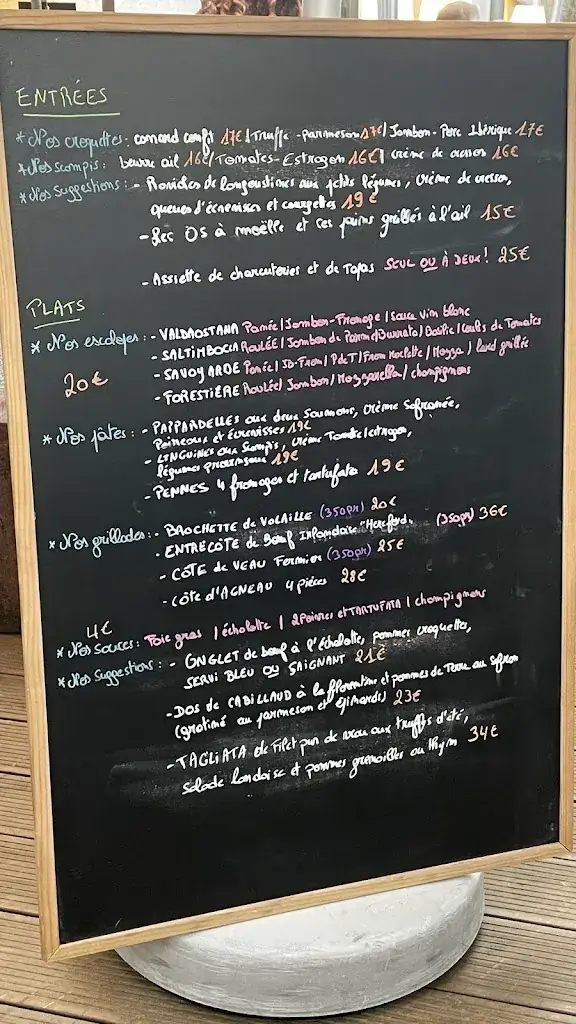 ENTRÉES
* Nos croquettes: canard confit 17€ / Truffe-parmesan 17€ / Jambon-Porc Ibérique 17€
* Nos scampis: beurre ail 16€ / Tomates-Estragon 16€ / crème de cresson 16€
* Nos suggestions: - Ravioles de langoustines aux petits légumes, crème de cresson,
queues d'écrevisses et courgettes 19€
- Les OS à moëlle et ses pains grillés à l'ail 15€
- Assiette de charcuteries et de Tapas SEUL OU À DEUX! 25€
PLATS
* Nos escalopes: - VALDAOSTANA Panée / Jambon-Fromage / Sauce vin blanc
- SALTIMBOCCA Roulée / Jambon de Parme / Burrata / Basilic / Coulis de Tomates
20€
- SAVOYARDE Panée / Jb-From / PdeT / From Raclette / Mozza / lard grillé
- FORESTIÈRE Roulée / Jambon / Mozzarella / champignons
* Nos pâtes: - PAPPARDELLES aux deux Saumons, crème Safranée,
Poireaux et écrevisses 19€
- LINGUINES aux Scampis, crème Tomate/estragon,
légumes 19€
- PENNES 4 fromages et tartufata 19€
* Nos grillades: - BROCHETTE de VOLAILLE (350gr) 20€
- ENTRECÔTE de Bœuf Irlandaise "Hereford" (350gr) 36€
- CÔTE de VEAU Fermier (350gr) 25€
- CÔTE d'AGNEAU 4 pièces 28€
4€
* Nos sauces: Foie gras / échalotte / 2 Poivres et TARTUFATA / champignons
* Nos Suggestions: - ONGLET de bœuf à l'échalotte, pommes croquettes,
SERVI BLEU OU SAIGNANT 21€
- DOS de CABILLAUD à la florentine et pommes de Terre au Safran
(gratiné au parmesan et épinards) 23€
- TAGLIATA de Filet pur de veau aux truffes d'été,
salade landaise et pommes grenailles au thym 34€